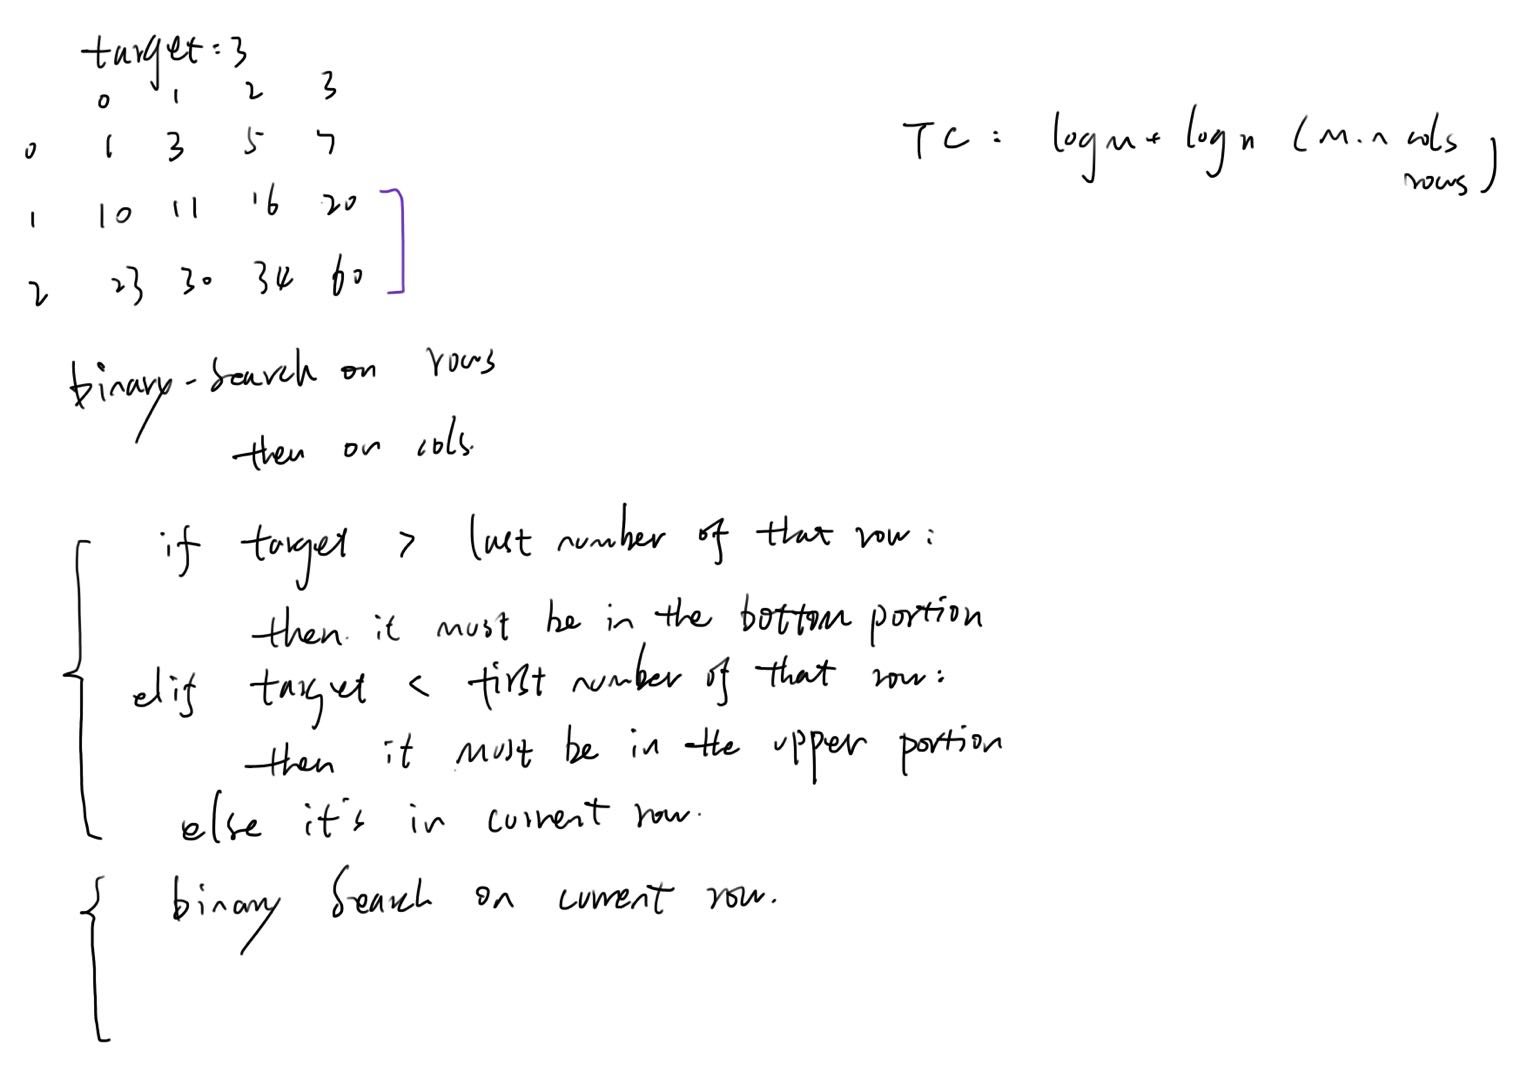 target: 3
0 1 2 3
0 1 3 5 7
1 10 11 16 20
2 23 30 34 60
TC: log m + log n (m.n cols
rows)
binary-search on rows
then on cols.
if target > last number of that row:
then it must be in the bottom portion
elif target < first number of that row:
then it must be in the upper portion
else it's in current row.
binary search on current row.